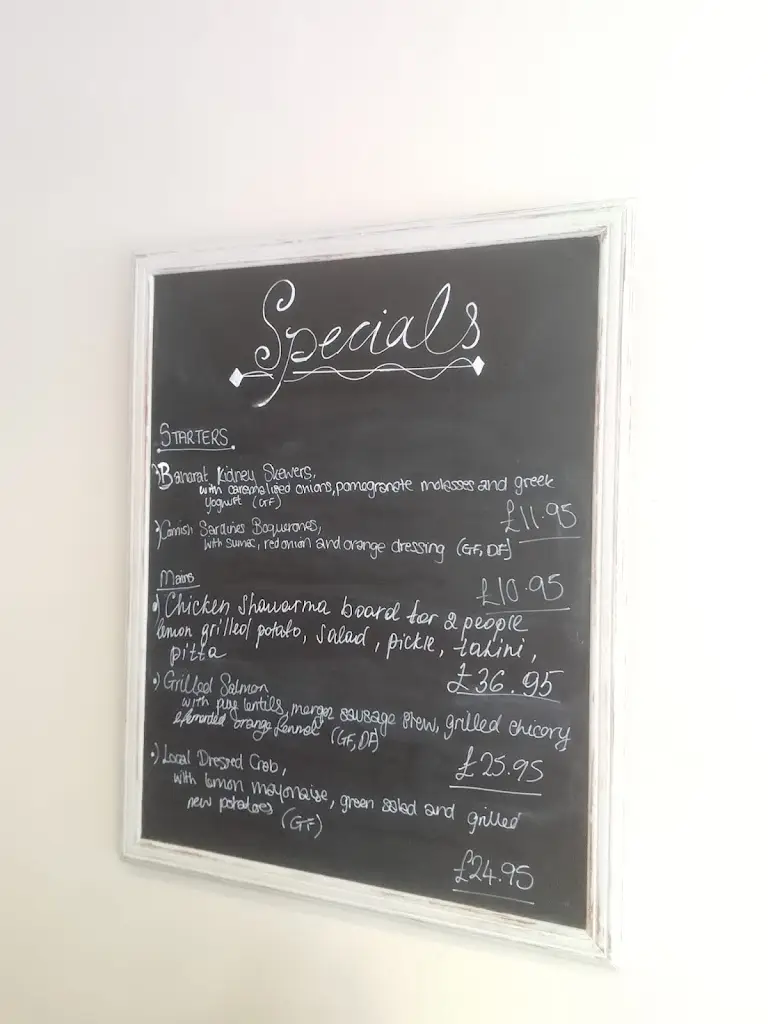 Specials
STARTERS
Baharat Kidney Skewers,
with caramelized onions, pomegranate molasses and greek
yogurt (GF)
£11.95
Cornish Sardines Boquerones,
with sumac, red onion and orange dressing (GF, DF)
£10.95
Mains
Chicken shawarma board for 2 people
lemon grilled potato, salad, pickle, tahini,
pitta
£36.95
Grilled Salmon
with puy lentils, merguez sausage stew, grilled chicory
orange fennel (GF, DF)
£25.95
Local Dressed Crab,
with lemon mayonaise, green salad and grilled
new potatoes
(GF)
£24.95